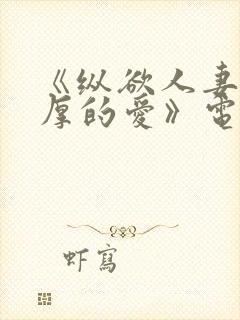 《纵欲人妻
厚的爱》电
虾写